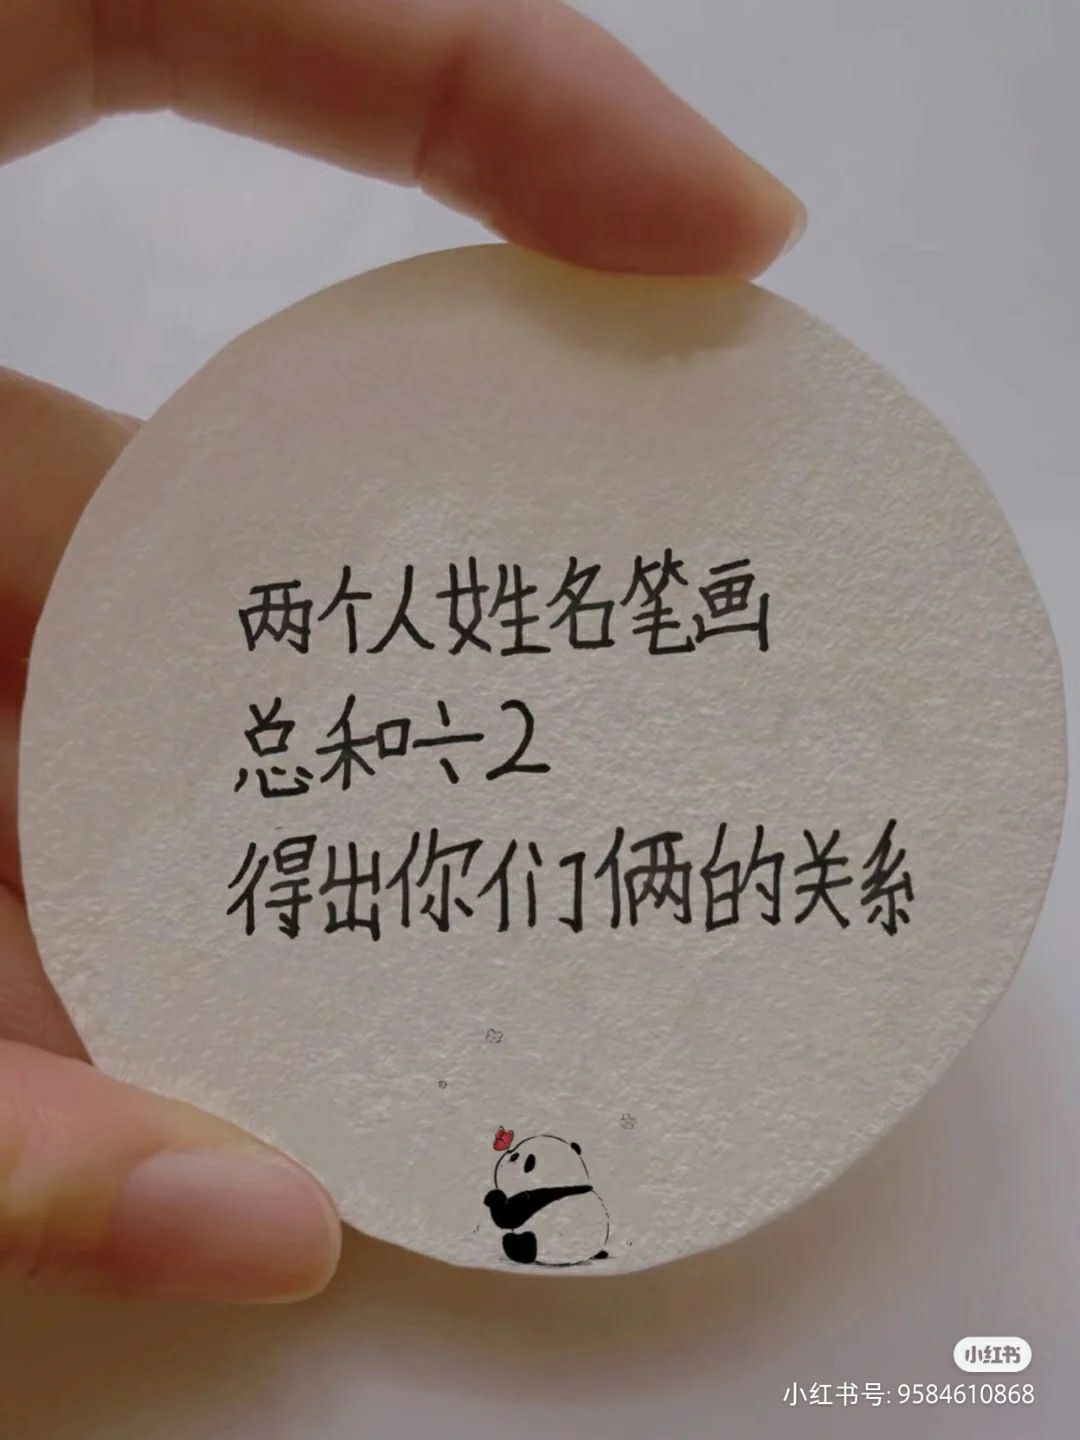 两个人姓名笔画
总和÷2
得出你们俩的关系
小红书
小红书号: 9584610868